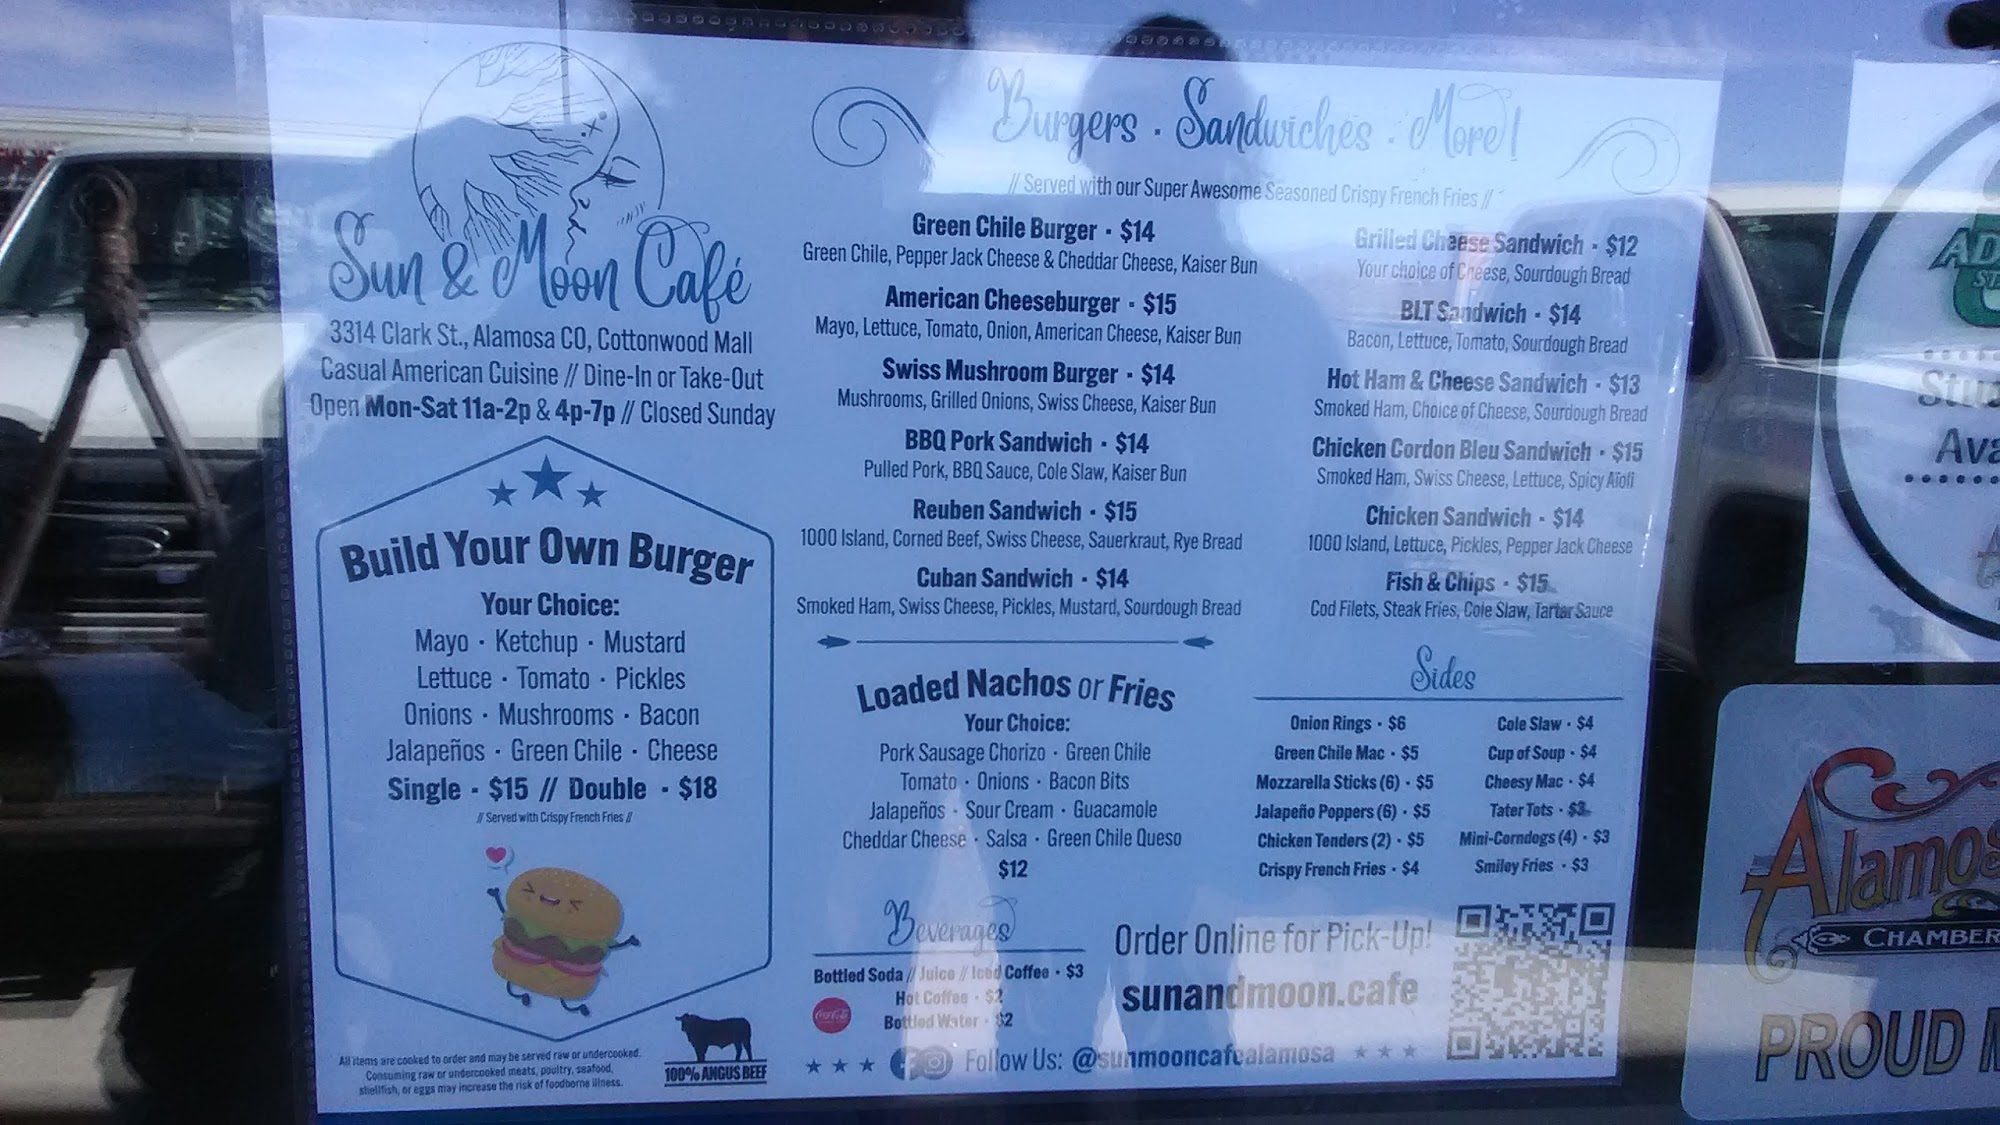 Sun & Moon Café
3314 Clark St., Alamosa CO, Cottonwood Mall
Casual American Cuisine // Dine-In or Take-Out
Open Mon-Sat 11a-2p & 4p-7p // Closed Sunday
Build Your Own Burger
Your Choice:
Mayo · Ketchup · Mustard
Lettuce · Tomato · Pickles
Onions · Mushrooms · Bacon
Jalapeños · Green Chile · Cheese
Single · $15 // Double · $18
// Served with Crispy French Fries //
All items are cooked to order and may be served raw or undercooked.
Consuming raw or undercooked meats, poultry, seafood,
shellfish, or eggs may increase the risk of foodborne illness.
100% ANGUS BEEF
Burgers · Sandwiches · More!
// Served with our Super Awesome Seasoned Crispy French Fries //
Green Chile Burger · $14
Green Chile, Pepper Jack Cheese & Cheddar Cheese, Kaiser Bun
American Cheeseburger · $15
Mayo, Lettuce, Tomato, Onion, American Cheese, Kaiser Bun
Swiss Mushroom Burger · $14
Mushrooms, Grilled Onions, Swiss Cheese, Kaiser Bun
BBQ Pork Sandwich · $14
Pulled Pork, BBQ Sauce, Cole Slaw, Kaiser Bun
Reuben Sandwich · $15
1000 Island, Corned Beef, Swiss Cheese, Sauerkraut, Rye Bread
Cuban Sandwich · $14
Smoked Ham, Swiss Cheese, Pickles, Mustard, Sourdough Bread
Grilled Cheese Sandwich · $12
Your choice of Cheese, Sourdough Bread
BLT Sandwich · $14
Bacon, Lettuce, Tomato, Sourdough Bread
Hot Ham & Cheese Sandwich · $13
Smoked Ham, Choice of Cheese, Sourdough Bread
Chicken Cordon Bleu Sandwich · $15
Smoked Ham, Swiss Cheese, Lettuce, Spicy Aioli
Chicken Sandwich · $14
1000 Island, Lettuce, Pickles, Pepper Jack Cheese
Fish & Chips · $15
Cod Filets, Steak Fries, Cole Slaw, Tartar Sauce
Loaded Nachos or Fries
Your Choice:
Pork Sausage Chorizo · Green Chile
Tomato · Onions · Bacon Bits
Jalapeños · Sour Cream · Guacamole
Cheddar Cheese · Salsa · Green Chile Queso
$12
Sides
Onion Rings · $6
Green Chile Mac · $5
Mozzarella Sticks (6) · $5
Jalapeño Poppers (6) · $5
Chicken Tenders (2) · $5
Crispy French Fries · $4
Cole Slaw · $4
Cup of Soup · $4
Cheesy Mac · $4
Tater Tots · $3
Mini-Corndogs (4) · $3
Smiley Fries · $3
Beverages
Bottled Soda // Juice // Iced Coffee · $3
Hot Coffee · $2
Bottled Water · $2
Coca-Cola
Order Online for Pick-Up!
sunandmoon.cafe
Follow Us: @sunmooncafealamosa
AD
Stu
Ava
Alamos
CHAMBER
PROUD M